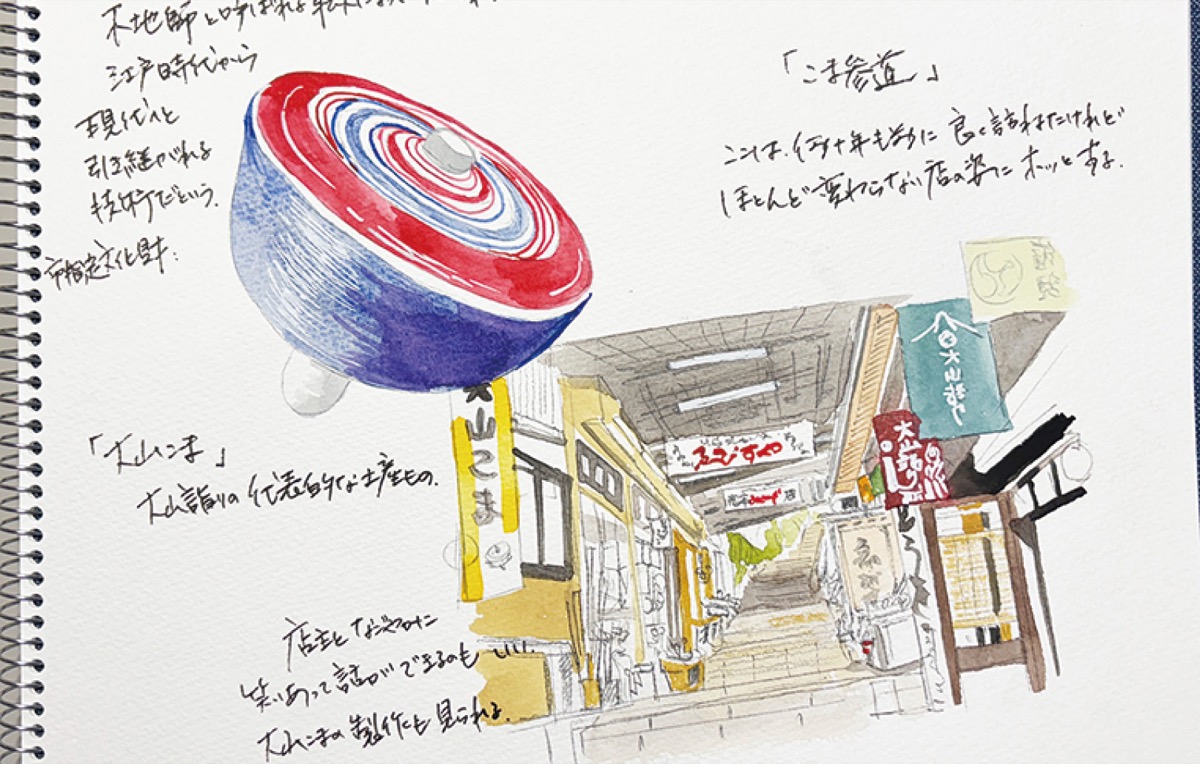 木地師と呼ばれる
江戸時代から
現代へと
引き継がれる
技術だという。
市指定文化財.
「こま参道」
ここは、何十年も前に良く訪ねたけれど
ほとんど変わらない店の姿にホッとする.
「大山こま」
大山詣りの代表的な土産もの.
店主となごやかに
笑いあって話ができるのもいい.
大山こまの製作も見られる.
大山こま
ゑびすや
大山